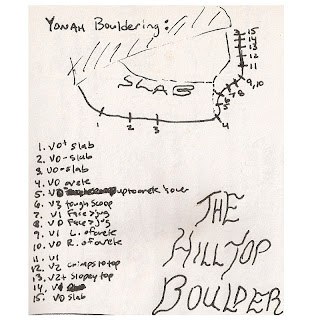 YONAH BOULDERING:
SLAB
15
14
13
12
11
9,10
8
7
6
5
4
1
2
3
1. V0+ slab
2. V0- slab
3. V0- slab
4. V0 arete
5. V0 up to arete
6. V3 tough scoop
7. V1 Face > jug
8. V0 Face > jug
9. V1 L. of arete
10. V0 R. of arete
11. V1
12. V2 crimps to top
13. V2+ slopey top
14. V0
15. V0 slab
THE
HILLTOP
BOULDER